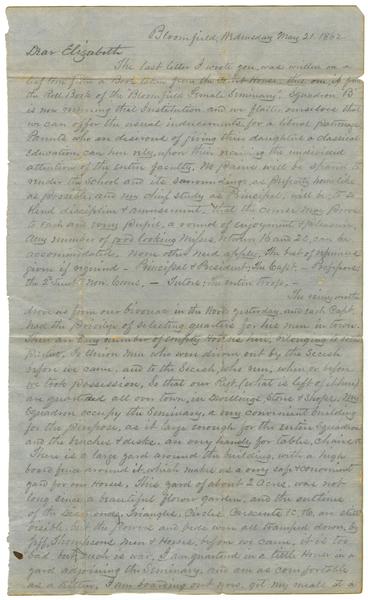 Bloomfield, Wednesday May 21. 1862
Dear Elizabeth
The last letter I wrote you, was written on a
leaf torn from a Book taken from the Court House this one, is from
the Roll Book of the Bloomfield Female Seminary. Squadron "B"
is now running that Institution and we flatter ourselves that
we can offer the usual inducements for a liberal patronage
Parents who are desirous of giving their daughters a classical
Education, can here rely upon their receiving the undivided
attention of the entire faculty. No pains will be spared to
render the School and its surroundings, as perfectly home like
as possible, and my chief study as Principal, will be, to
blend discipline & amusement. that the course may prove
to each and every Pupil, a round of enjoyment & pleasure.
Any number of good looking Misses, between 15 and 22, can be
accommodated. None other need apply. The best of reference
given if required — Principal & President, the Capt. — Professors,
the 2 Lieuts & Non. Coms. — Tutors, the entire troop. —
The rainy weather
drove us from our bivouac in the Woods yesterday, and each Capt.
had the Privilege of selecting quarters for his men in town.
There are any number of empty Houses here, belonging to
to Union men who were driven out by the Secesh
before we came, and to the Secesh, who ran, when or before
we took possession, so that our Regt. (what is left of it here)
are quartered all over town, in dwellings, Stores & Shops. My
Squadron occupy the Seminary, a very convenient building
for the purpose, as it is large enough for the entire Squadron
and the benches & desks are very handy for tables, chairs &c
There is a large yard around the building, with a high
board fence around it, which makes us a very safe & convenient
yard for our Horses. This yard of about 2 Acres, was not
long since a beautiful flower garden, and the outlines
of the Diamonds, Triangles, Circles Crescents &c &c, are still
visible, but the flowers and beds were all tramped down, by
Jeff. Thompsons Men & Horses, before we came, it is too
bad but, such is war. I am quartered in a little House in a
yard adjoining the Seminary, and am as comfortable
as a kitten. I am boarding out now, get my meals at a